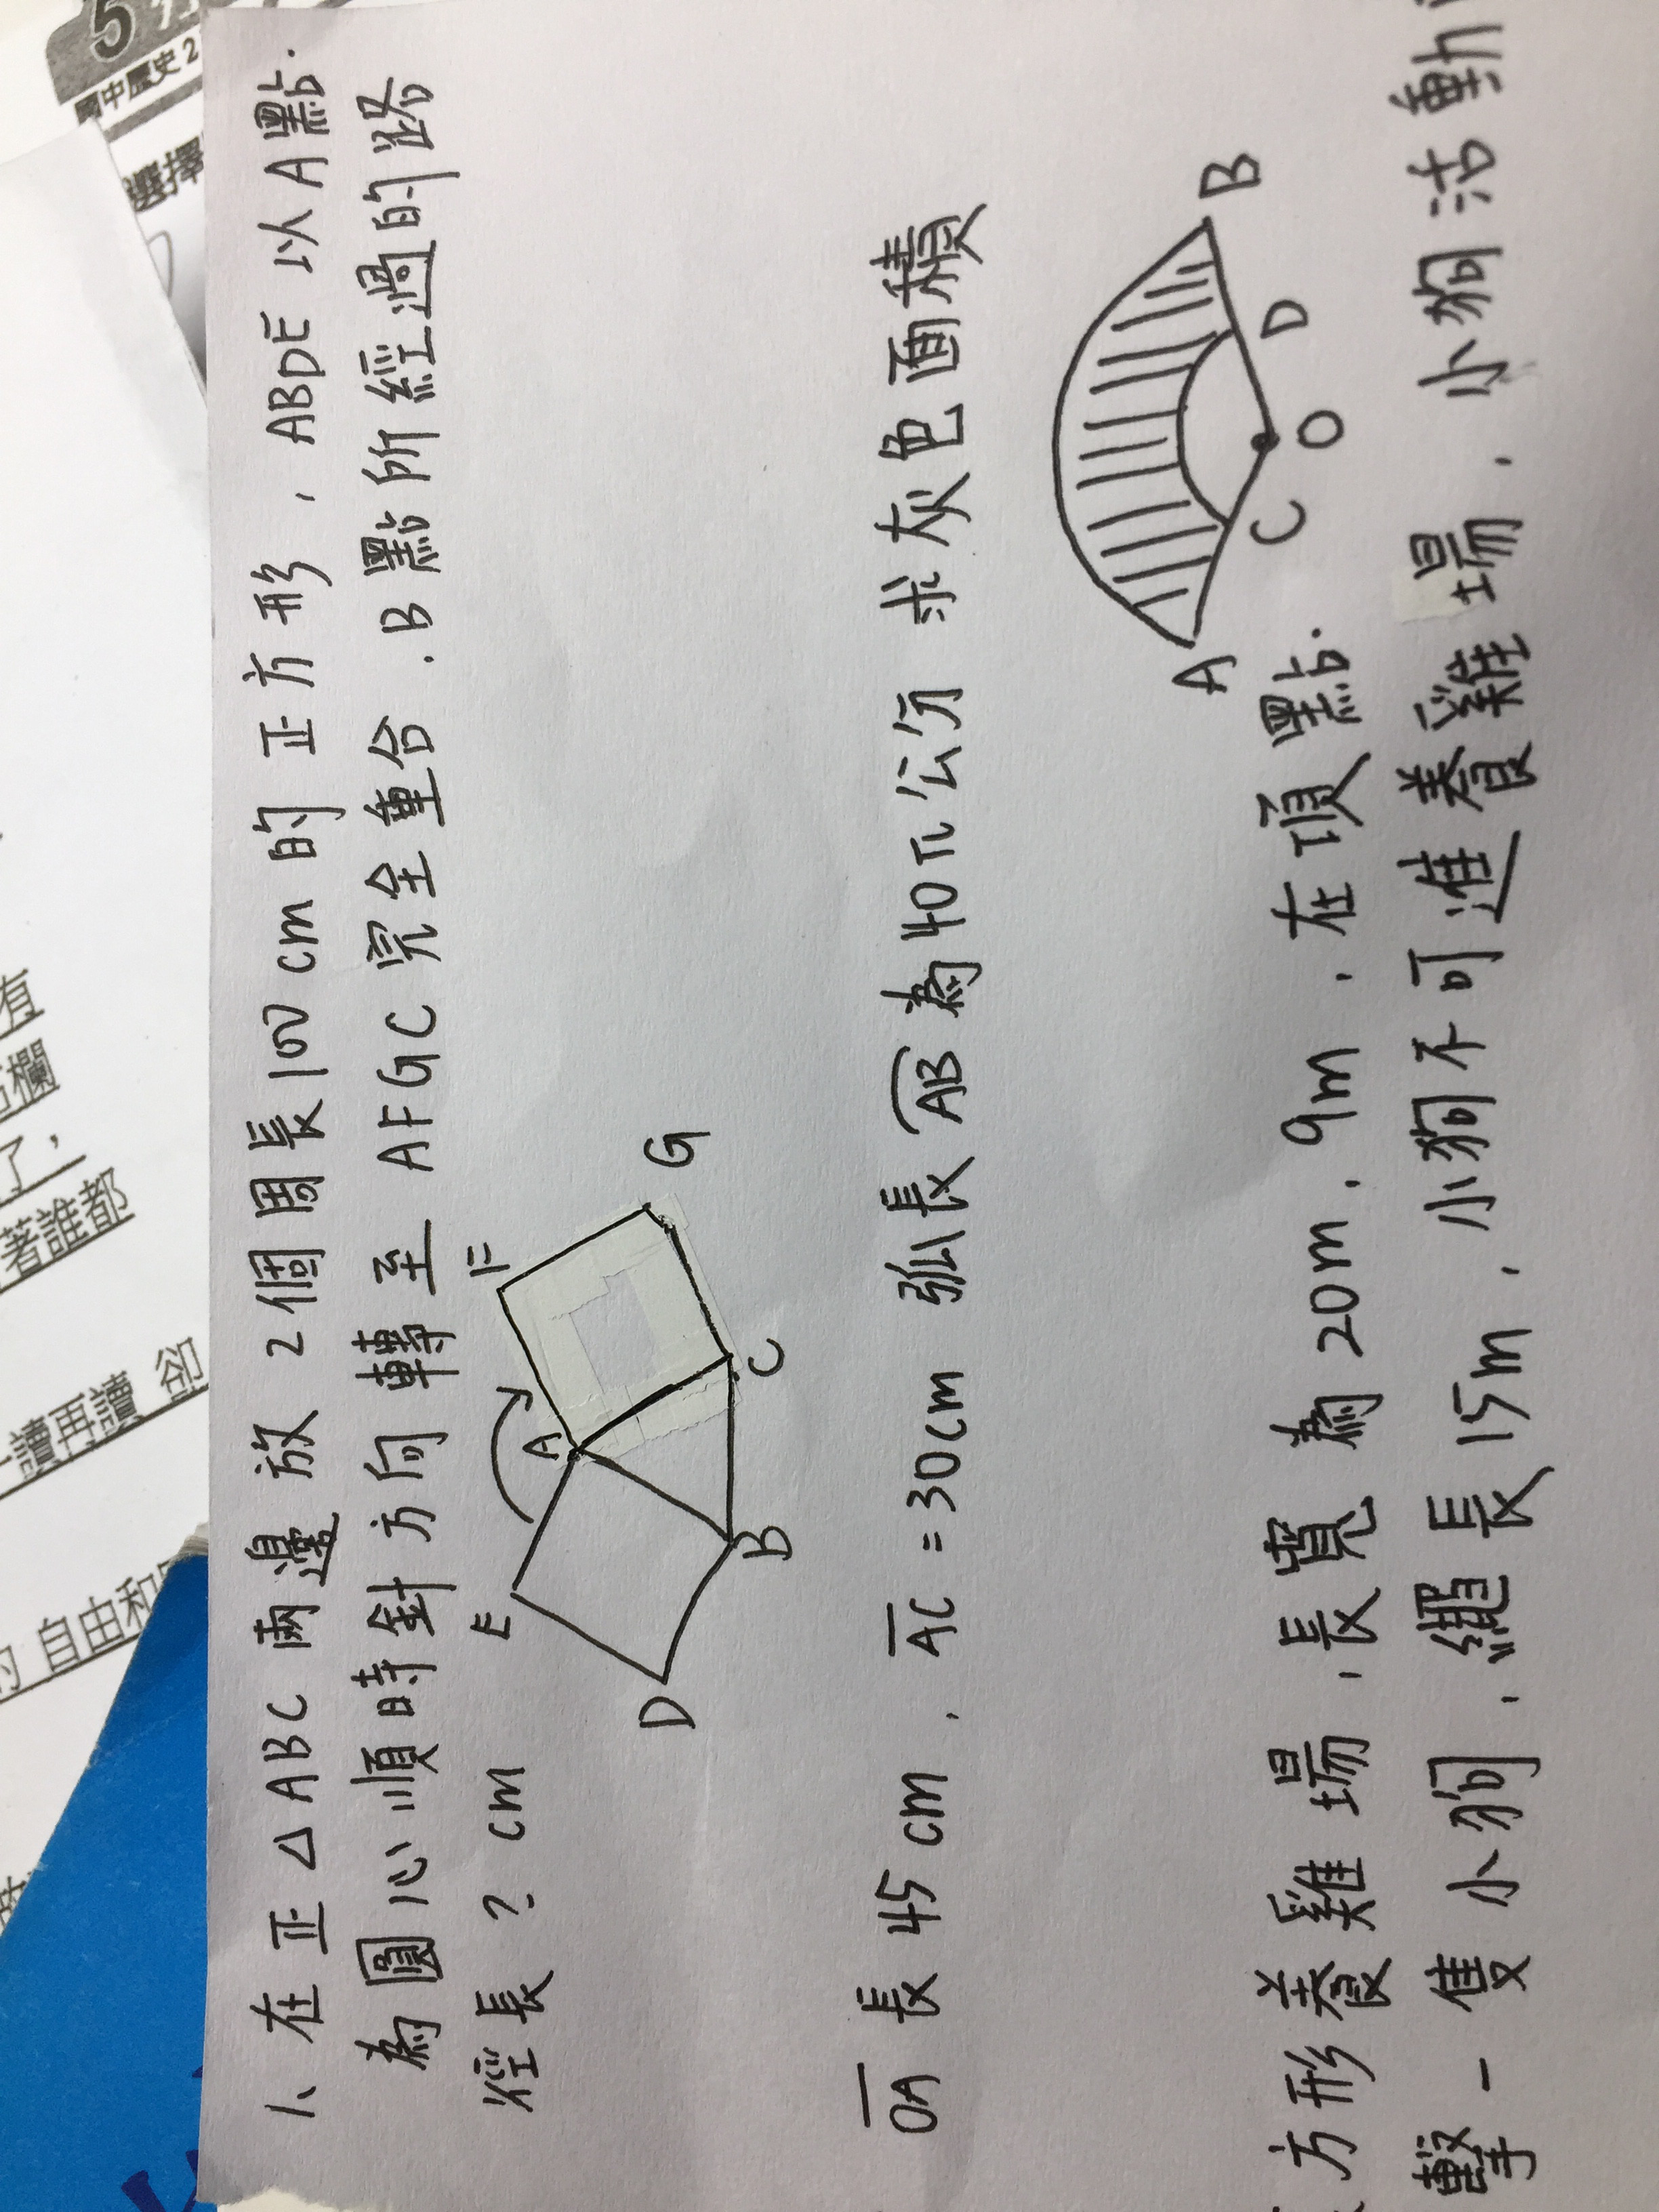 1、在正△ABC兩邊放2個周長100cm的正方形，ABDE以A點.
為圓心順時針方向轉至AFGC完全重合.B點所經過的路
徑長?cm
E
A
F
D
B
C
G
OA長45cm，AC=30cm 弧長AB為40π公分 求灰色面積
A
C
O
D
B
方形養雞場,長寬為20m,9m,在頂點.
擊一隻小狗,繩長15m,小狗不可進養雞場,小狗活動
5
國中歷史2
選擇
有
欄
了，
著誰都
讀再讀 卻
自由和